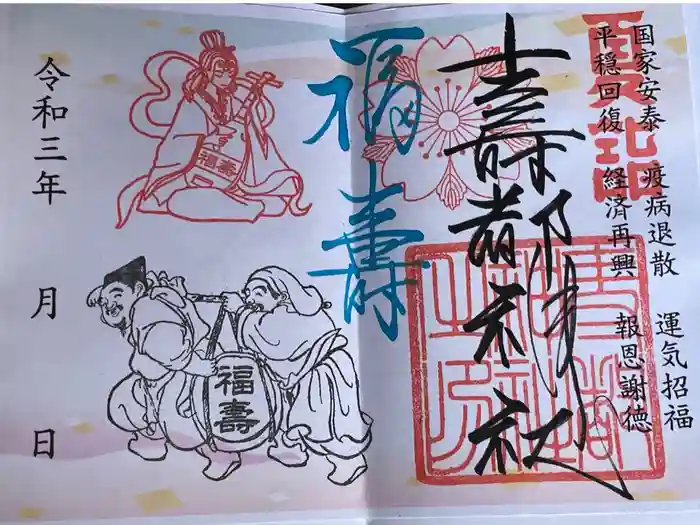 国家安泰 疫病退散 運気招福
平穏回復 経済再興 報恩謝徳
夏詣
壽都神社
福壽
福壽
福壽
令和三年 月 日